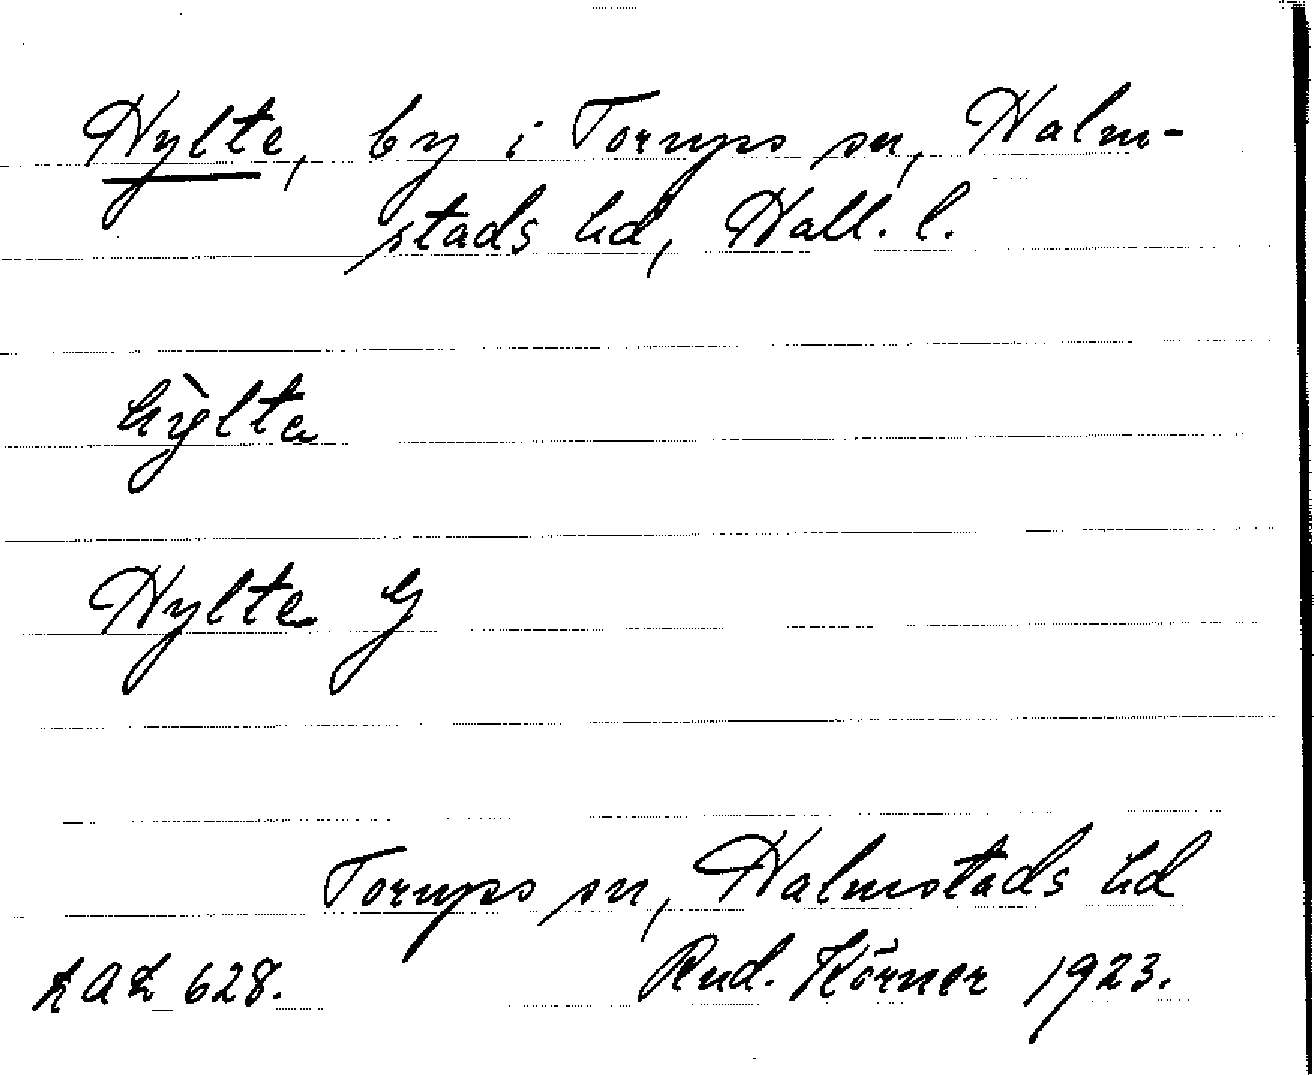 Hylte, by i Torups sn, Halm-
stads hd, Hall. l.
hỳlta
Hylte G
Torups sn, Halmstads hd
LAL 628. Rud. Körner 1923.